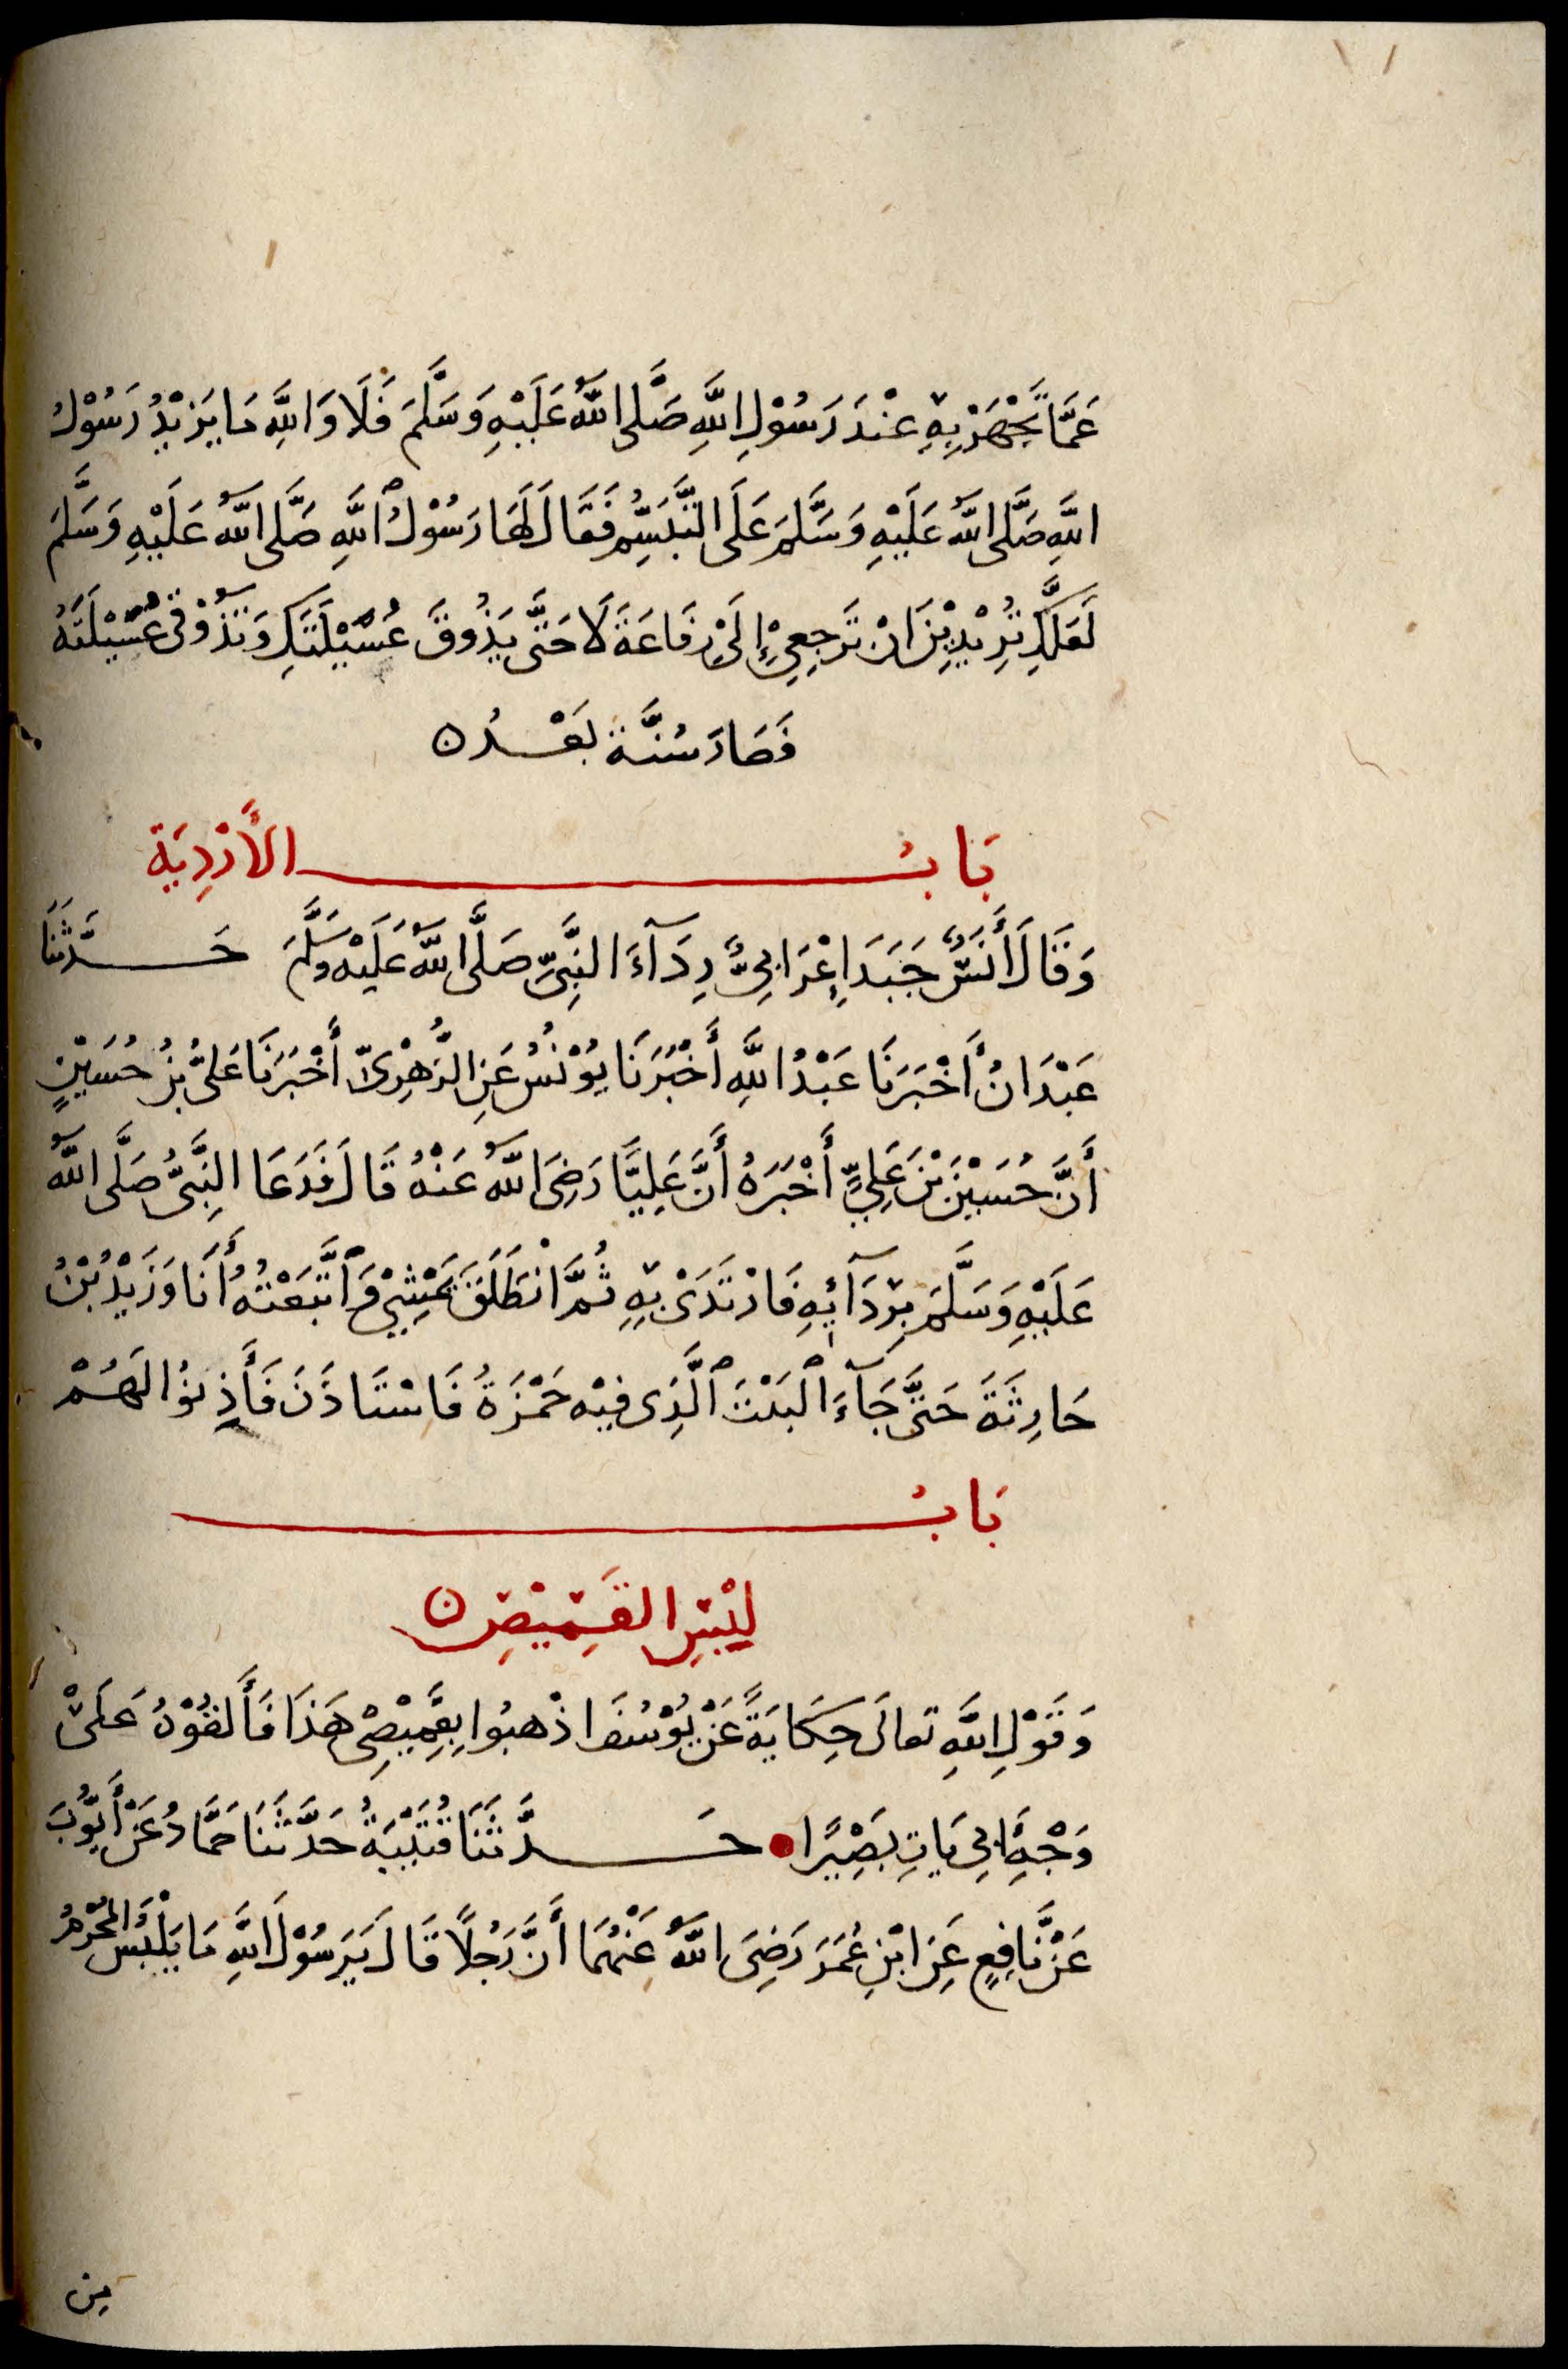 عَمَّا تَجْهَرُ بِهِ عِنْدَ رَسُوْلِ اللَّهِ صَلَّى اللَّهُ عَلَيْهِ وَسَلَّمَ فَلَا وَاللَّهِ مَا يَزِيْدُ رَسُوْلُ
اللَّهِ صَلَّى اللَّهُ عَلَيْهِ وَسَلَّمَ عَلَى التَّبَسُّمِ فَقَالَ لَهَا رَسُوْلُ ٱللَّهِ صَلَّى اللَّهُ عَلَيْهِ وَسَلَّمَ
لَعَلَّكِ تُرِيْدِيْنَ انْ تَرْجِعِيْ إِلَىْ رِفَاعَةَ لَا حَتَّى يَذُوقَ عُسَيْلَتَكِ وَتَذُوْقِى عُسَيْلَتَهُ
فَصَارَ سُنَّة بَعْدُ ن
بَابُ الْأَرْدِيَة
وَقَالَ أَنَسٌ جَبَدَ اِعْرَابِىٌّ رِدَآءَ النَّبِىِّ صَلَّى اللَّهُ عَلَيْهِ وَسَلَّمَ حَدَّثَنَا
عَبْدَانُ أَخْبَرَنَا عَبْدُ اللَّهِ أَخْبَرَنَا يُوْنُسُ عَنِ الزُّهْرِىِّ أَخْبَرَنَا عَلِىُّ بْنُ حُسَيْنٍ
أَنَّ حُسَيْنَ بْنَ عَلِيٍّ أَخْبَرَهُ أَنَّ عَلِيًّا رَضِىَ اللَّهُ عَنْهُ قَالَ فَدَعَا النَّبِىُّ صَلَّى اللَّهُ
عَلَيْهِ وَسَلَّمَ بِرِدَآئِهِ فَارْتَدَىْ بِهِ ثُمَّ انْطَلَقَ يَمْشِيْ وَٱتَّبَعْتُهُ أَنَا وَزَيْدُ بْنُ
حَارِثَةَ حَتَّى جَآءَ ٱلْبَيْتَ ٱلَّذِى فِيْهِ حَمْزَةُ فَاسْتَاذَنَ فَأَذِنُوْا لَهُمْ
بَابُ
لُبْسِ القَمِيْصِ ن
وَقَوْلِ اللَّهِ تعالَى حِكَايَةً عَنْ يُوْسُفَ اذْهبُوا بِقَمِيْصِىْ هَذَا فَأَلقُوْهُ عَلَىْ
وَجْهِ أبِى يَاتِ بَصِيْرًا حَدَّثَنَا قُتَيْبَةُ حَدَّثَنَا حَمَّادُ عَنْ أَيُّوْبَ
عَنْ نَّافِعٍ عَنِ ابْنِ عُمَرَ رَضِىَ اللَّهُ عَنْهُمَا أَنَّ رَجُلًا قَالَ يَرَسُوْلَ اللَّهِ مَا يَلْبَسُ المُحْرِمُ
مِن